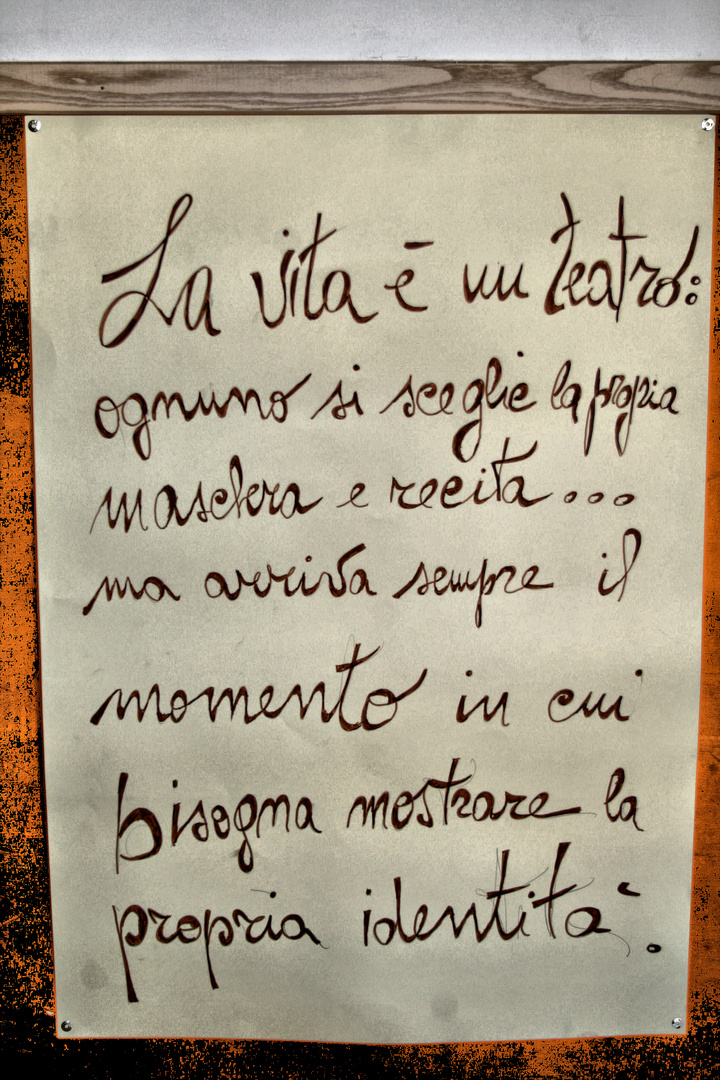 La vita è un teatro:
ognuno si sceglie la propria
maschera e recita...
ma arriva sempre il
momento in cui
bisogna mostrare la
propria identità.